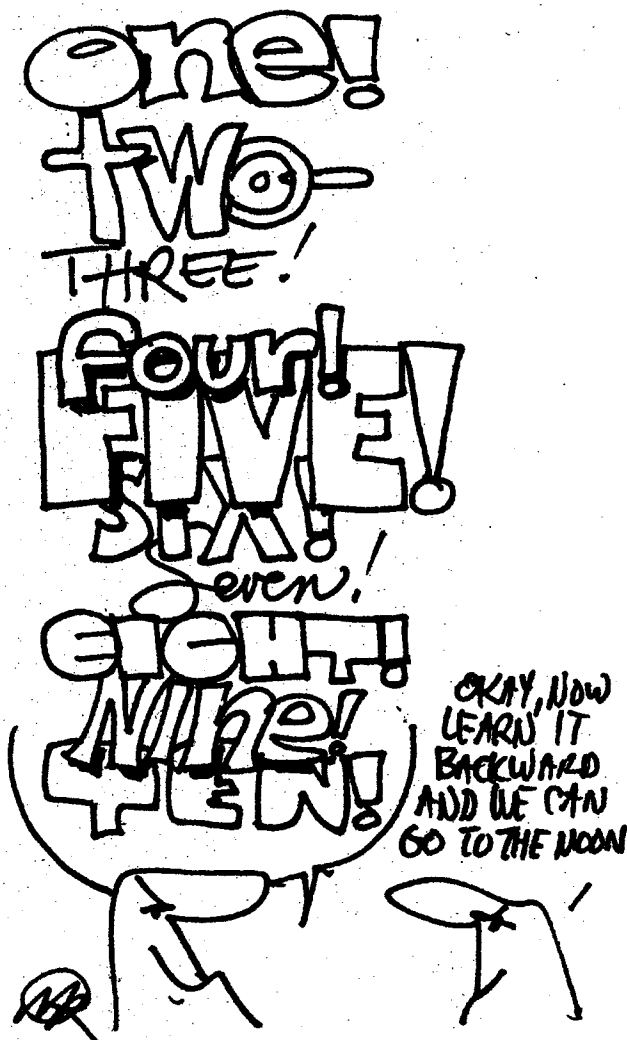 one!
two-
THREE!
four!
FIVE!
SIX!
seven!
EIGHT!
Nine!
TEN!
OKAY, NOW
LEARN IT
BACKWARD
AND WE CAN
GO TO THE MOON